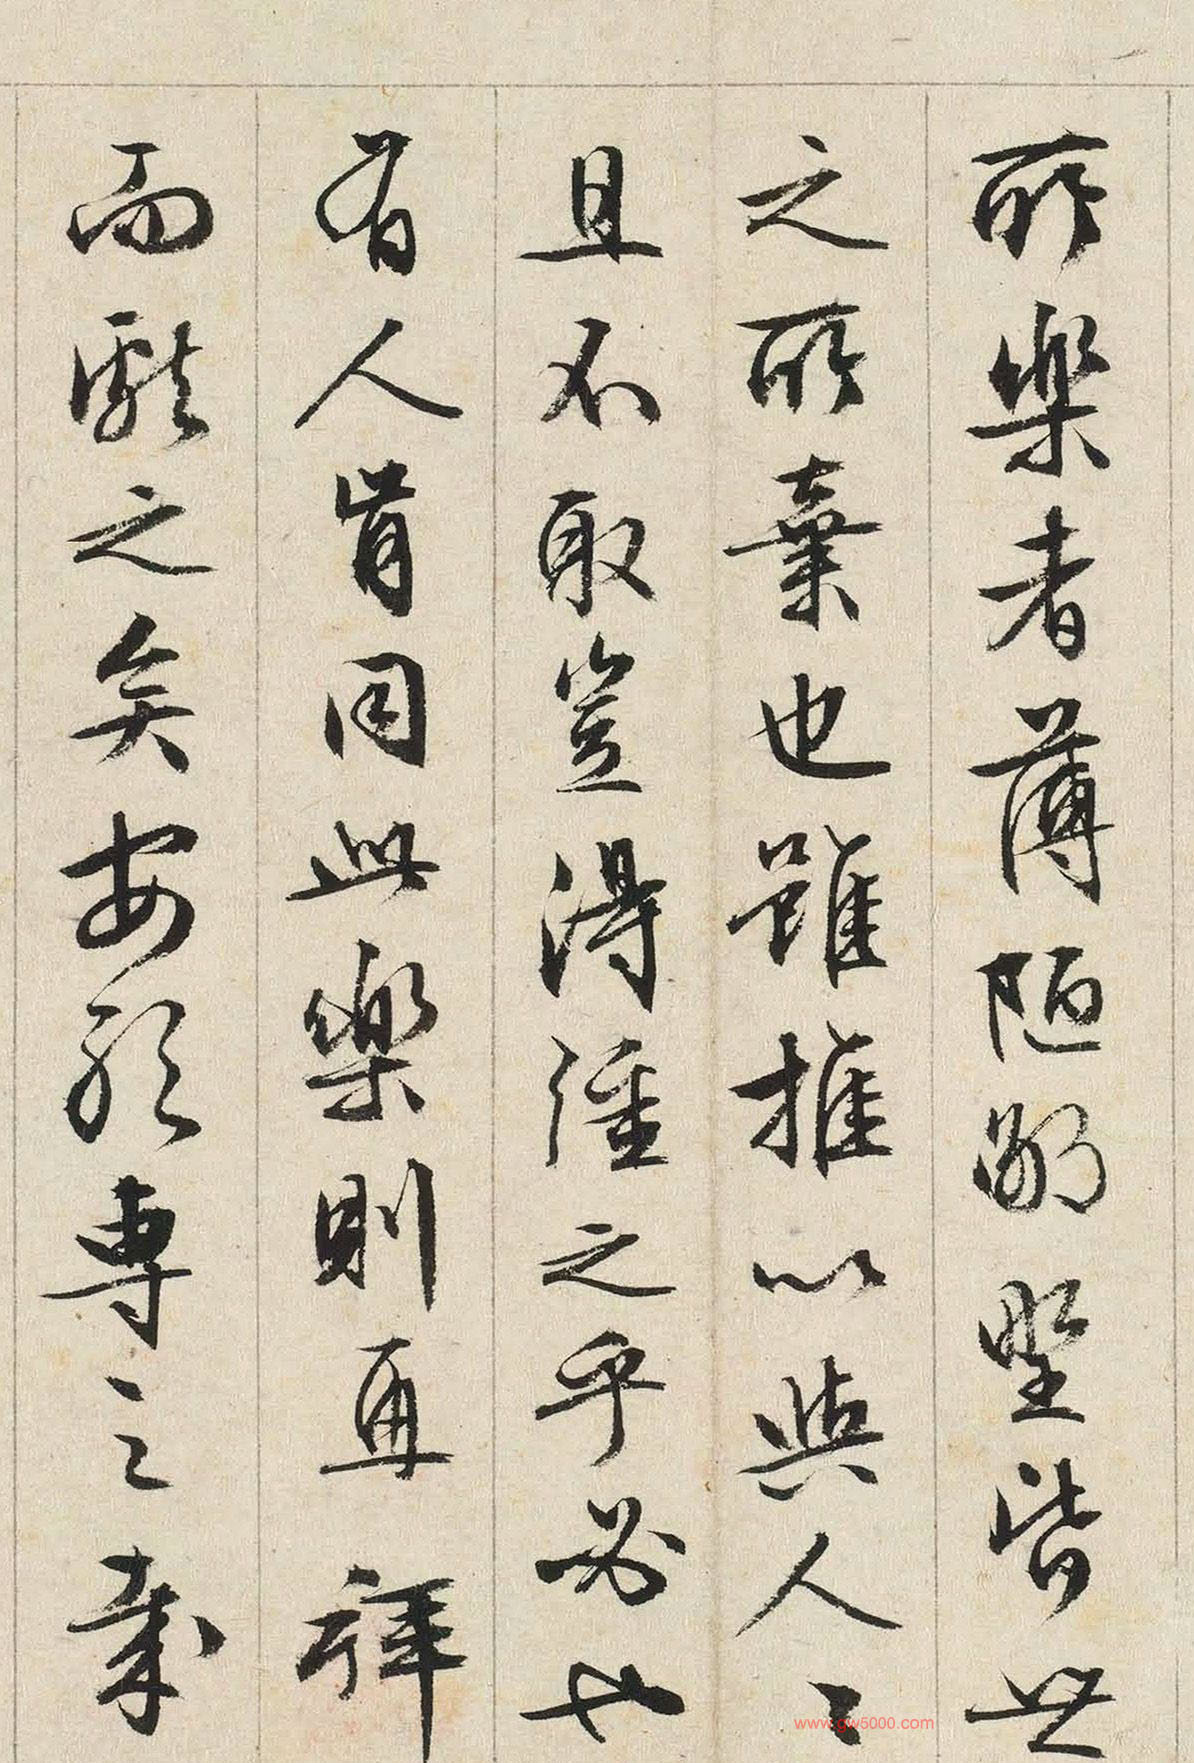 所樂者薄陋鄙野皆世
之所棄也雖推以與人〻
且不取豈得彊之乎必也
有人肯同此樂則再拜
而獻之矣安敢專之哉
www.gw5000.com